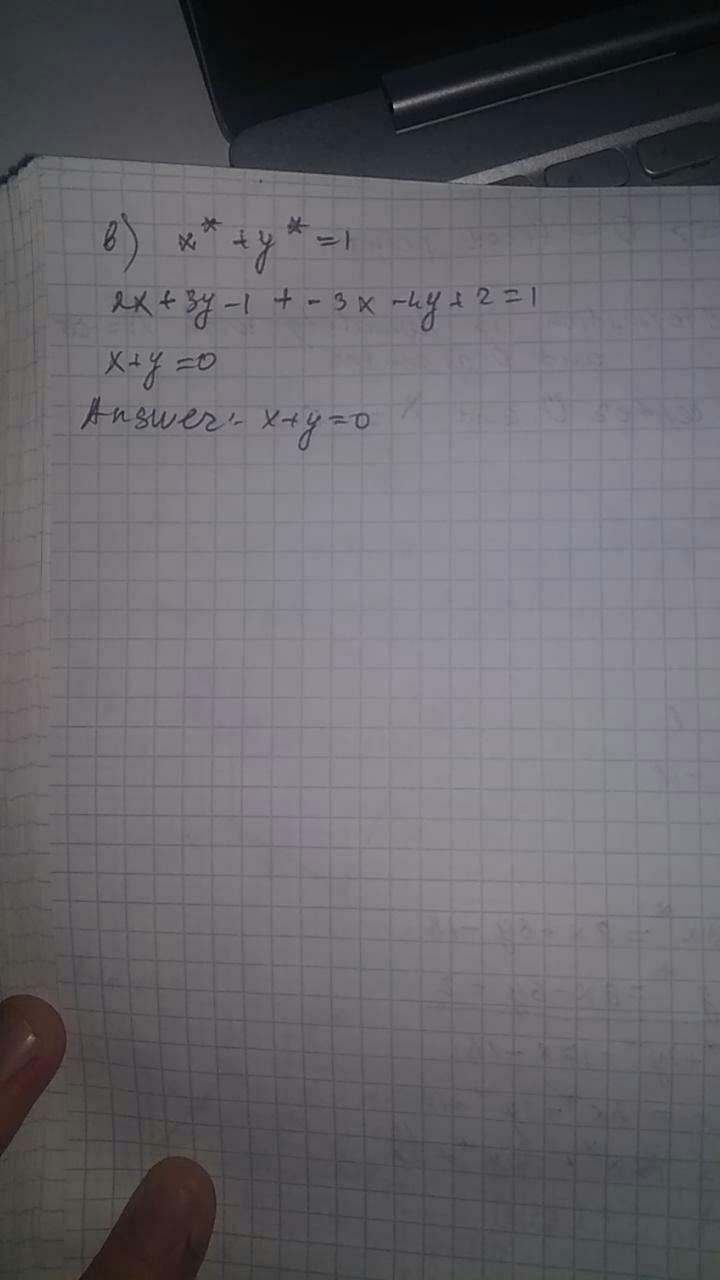 в) x* + y* = 1
2x + 3y - 1 + - 3x - 4y + 2 = 1
x + y = 0
Answer:- x + y = 0